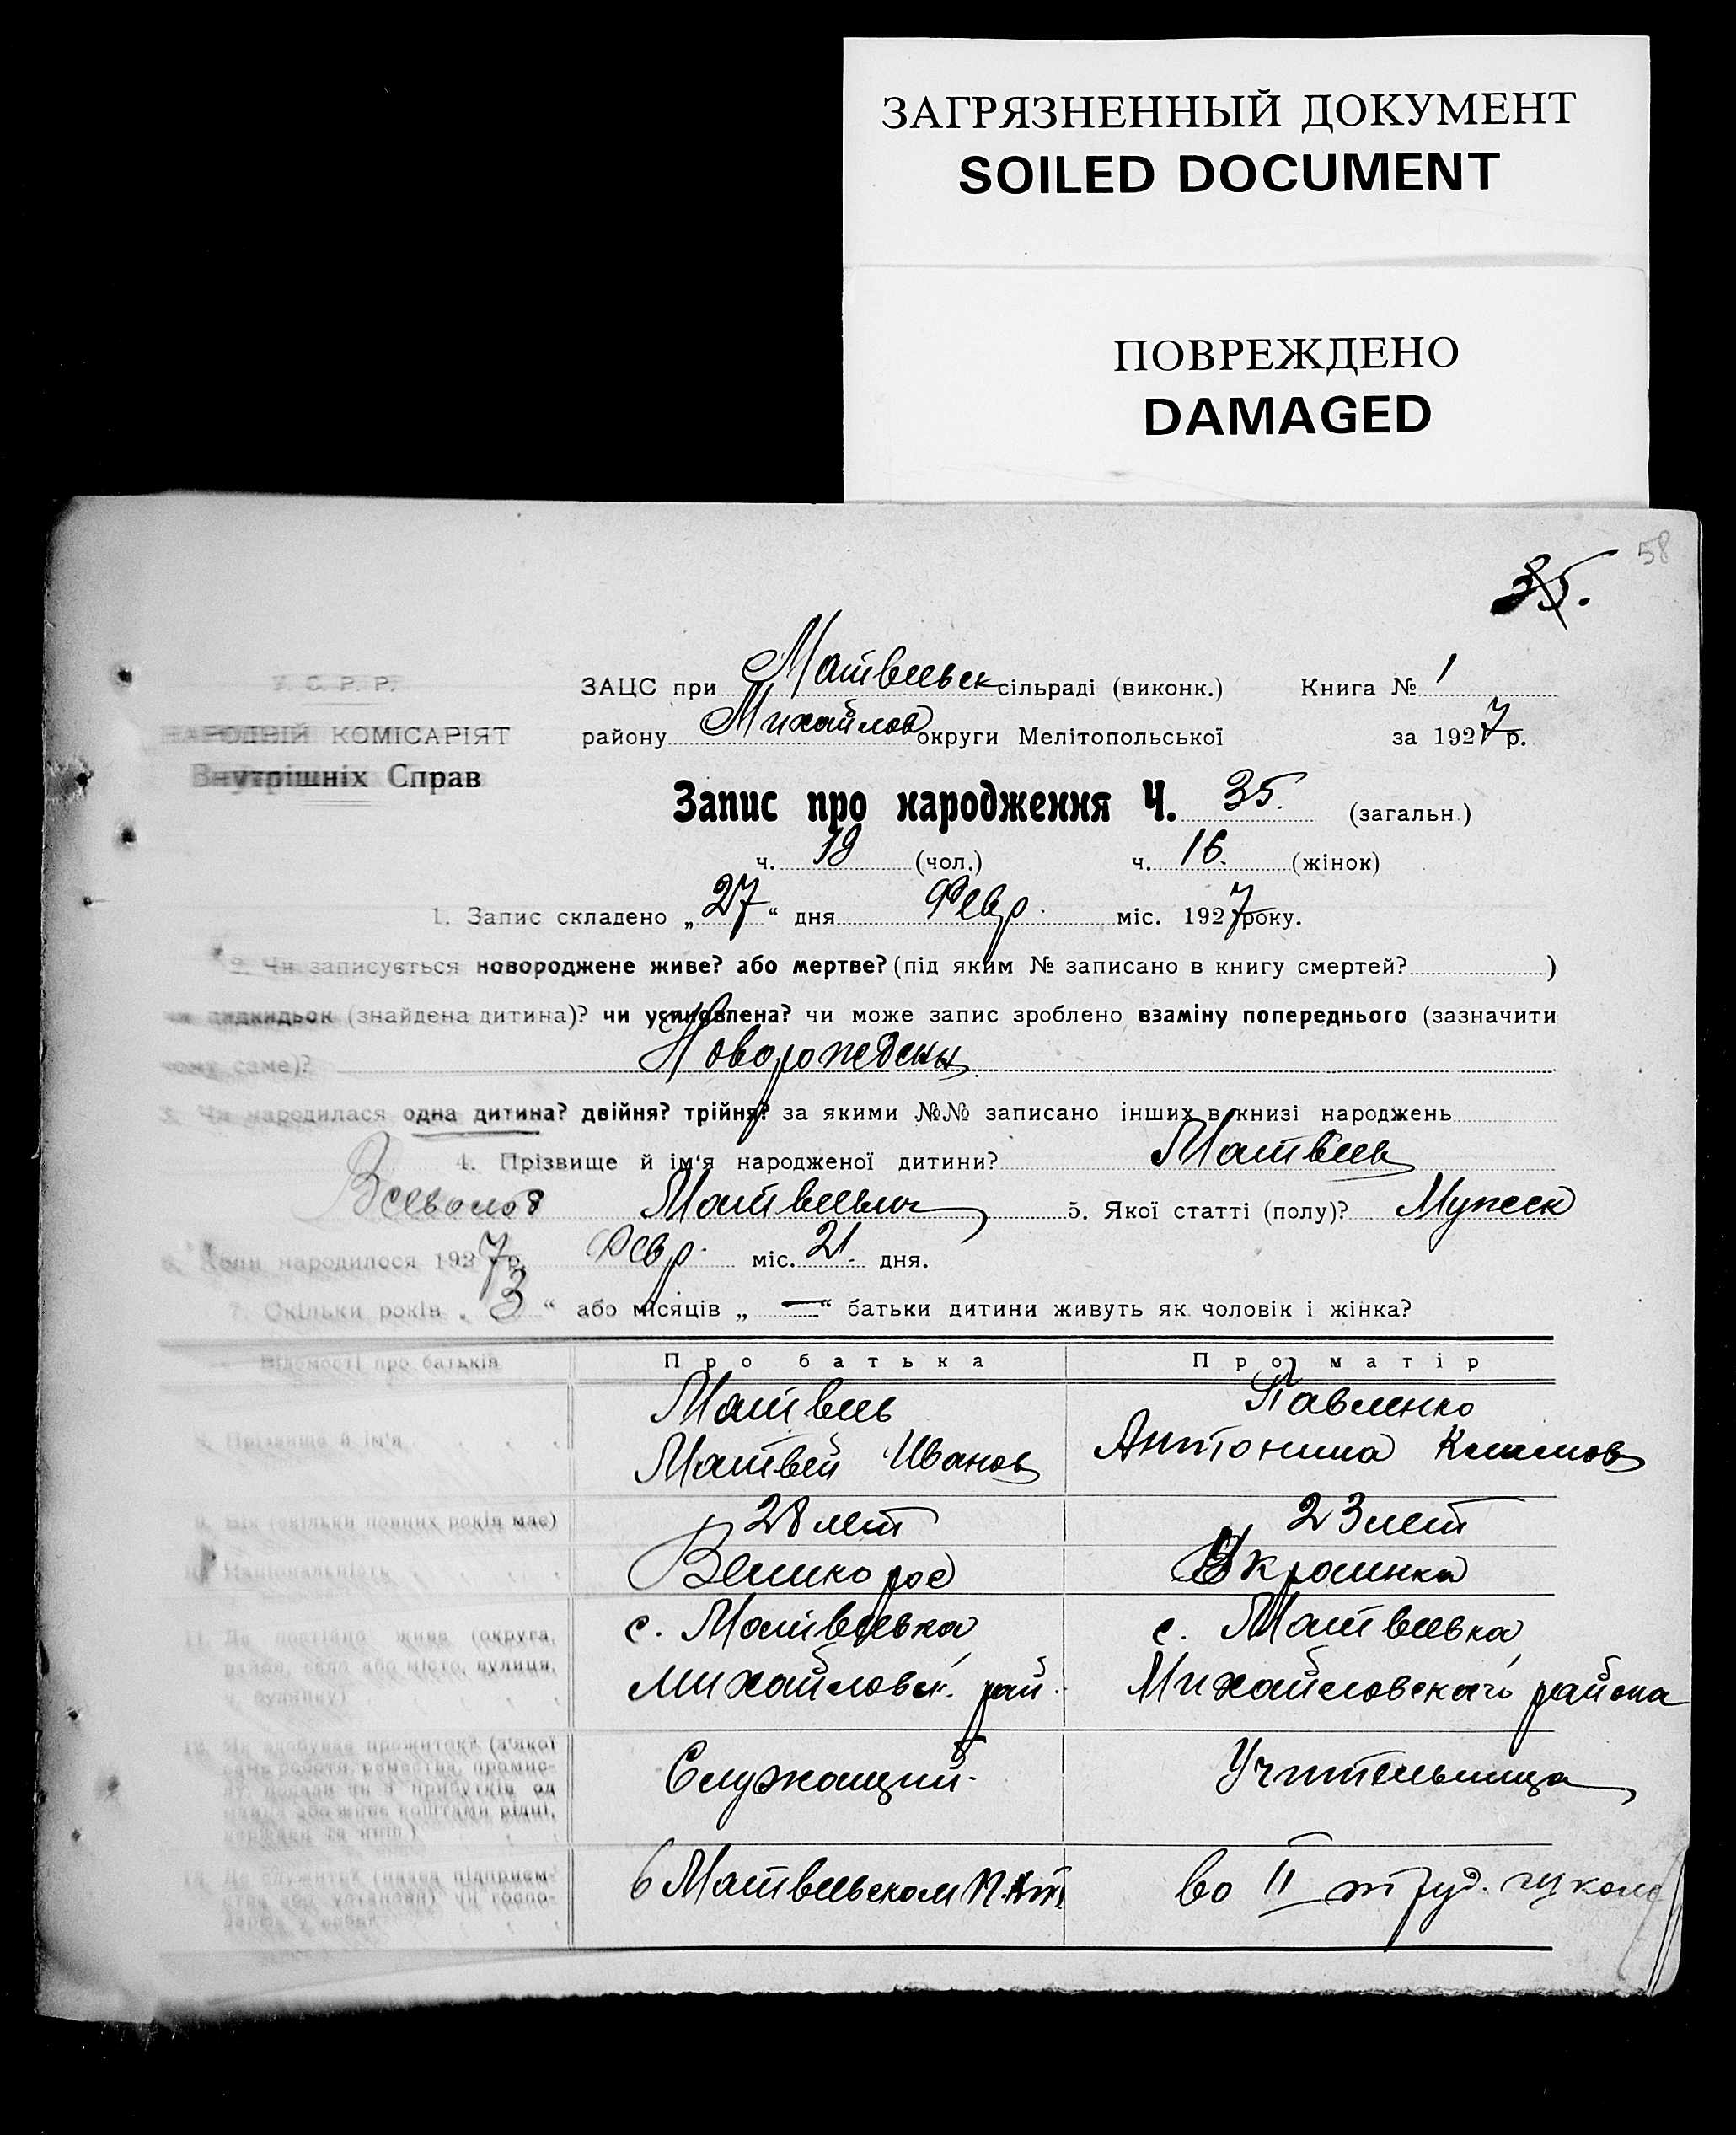 ЗАГРЯЗНЕННЫЙ ДОКУМЕНТ
SOILED DOCUMENT
ПОВРЕЖДЕНО
DAMAGED
58
35.
У. С. Р. Р.
НАРОДНІЙ КОМІСАРІЯТ
Внутрішніх Справ
ЗАЦС при Матвеевск сільраді (виконк.) Книга № 1
району Михайлов округи Мелітопольської за 1927 р.
Запис про народження Ч. 35. (загальн.)
ч. 19 (чол.) ч. 16. (жінок)
1. Запис складено „27“ дня Февр. міс. 1927 року.
2. Чи записується новороджене живе? або мертве? (під яким № записано в книгу смертей? )
чи підкидьок (знайдена дитина)? чи усиновлена? чи може запис зроблено взаміну попереднього (зазначити
чому саме)? Новорожедены
3. Чи народилася одна дитина? двійня? трійня? за якими №№ записано інших в книзі народжень
4. Прізвище й ім'я народженої дитини? Матвеев
Всеволод Матвеевич 5. Якої статті (полу)? Мужеск
6. Коли народилося 1927 р. Февр. міс. 21. дня.
7. Скільки років „3“ або місяців „—“ батьки дитини живуть як чоловік і жінка?
Відомості про батьків Про батька Про матір
8. Прізвище й ім'я Матвеев Павленко
Матвей Иванов Антонина Климов
9. Вік (скільки повних років має) 28 лет 23 лет
10. Національність Великорос Украинка
11. Де постійно живе (округа, с. Матвеевка с. Матвеевка
район, село або місто, вулиця, Михайловск. рай. Михайловского района
ч. будинку)
12. Як здобуває прожиток? (з якої
саме роботи, ремества, промис- Служащий Учительница
лу, подали чи з прибутків од
майна або живе коштами рідні,
держави та инш.)
13. Де служить? (назва підприєм- в Матвеевском во II труд. школе
ства або установи) чи госпо-
дарює у себе?